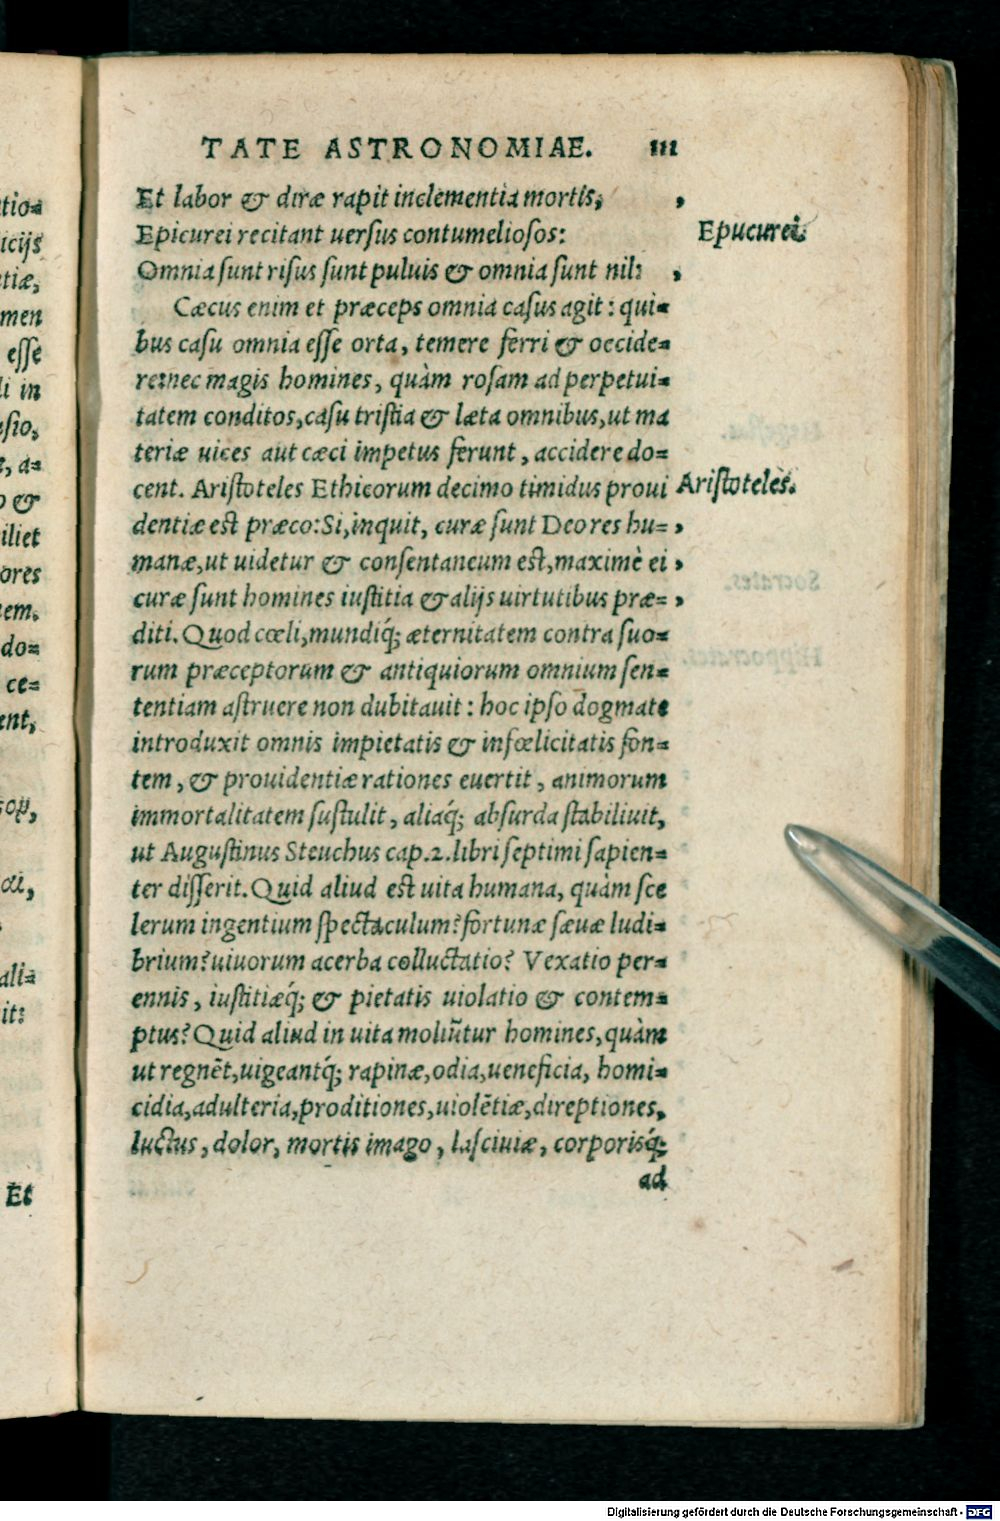 TATE ASTRONOMIAE. III
Et labor & diræ rapit inclementia mortis; ,
Epicurei recitant uersus contumeliosos:
Epucurei.
Omnia sunt risus sunt puluis & omnia sunt nil: ,
Cæcus enim et præceps omnia casus agit : qui=
bus casu omnia esse orta, temere ferri & occide=
re:nec magis homines, quàm rosam ad perpetui=
tatem conditos,casu tristia & læta omnibus,ut ma
teriæ uices aut cæci impetus ferunt, accidere do=
cent. Aristoteles Ethicorum decimo timidus proui
Aristoteles.
dentiæ est præco:Si,inquit, curæ sunt Deo res hu= ,
manæ,ut uidetur & consentaneum est,maximè ei ,
curæ sunt homines iustitia & alijs uirtutibus præ= ,
diti. Quod cœli,mundiq́; æternitatem contra suo=
rum præceptorum & antiquiorum omnium sen=
tentiam astruere non dubitauit : hoc ipso dogmate
introduxit omnis impietatis & infœlicitatis fon=
tem, & prouidentiæ rationes euertit, animorum
immortalitatem sustulit, aliaq́; absurda stabiliuit,
ut Augustinus Steuchus cap.2.libri septimi sapien=
ter disserit. Quid aliud est uita humana, quàm sce
lerum ingentium spectaculum? fortunæ sæuæ ludi=
brium? uiuorum acerba colluctatio? Vexatio per=
ennis, iustitiæq́; & pietatis uiolatio & contem=
ptus? Quid aliud in uita moliūtur homines,quàm
ut regnēt,uigeantq́; rapinæ,odia,ueneficia, homi=
cidia,adulteria,proditiones,uiolētiæ,direptiones,
luctus, dolor, mortis imago, lasciuiæ, corporisq́;
ad
tio=
icijs
tiæ,
men
esse
li in
sio,
e, a=
o &
iliet
ores
em.
do=
ce=
ent,
ali=
it:
Et
Digitalisierung gefördert durch die Deutsche Forschungsgemeinschaft - DFG